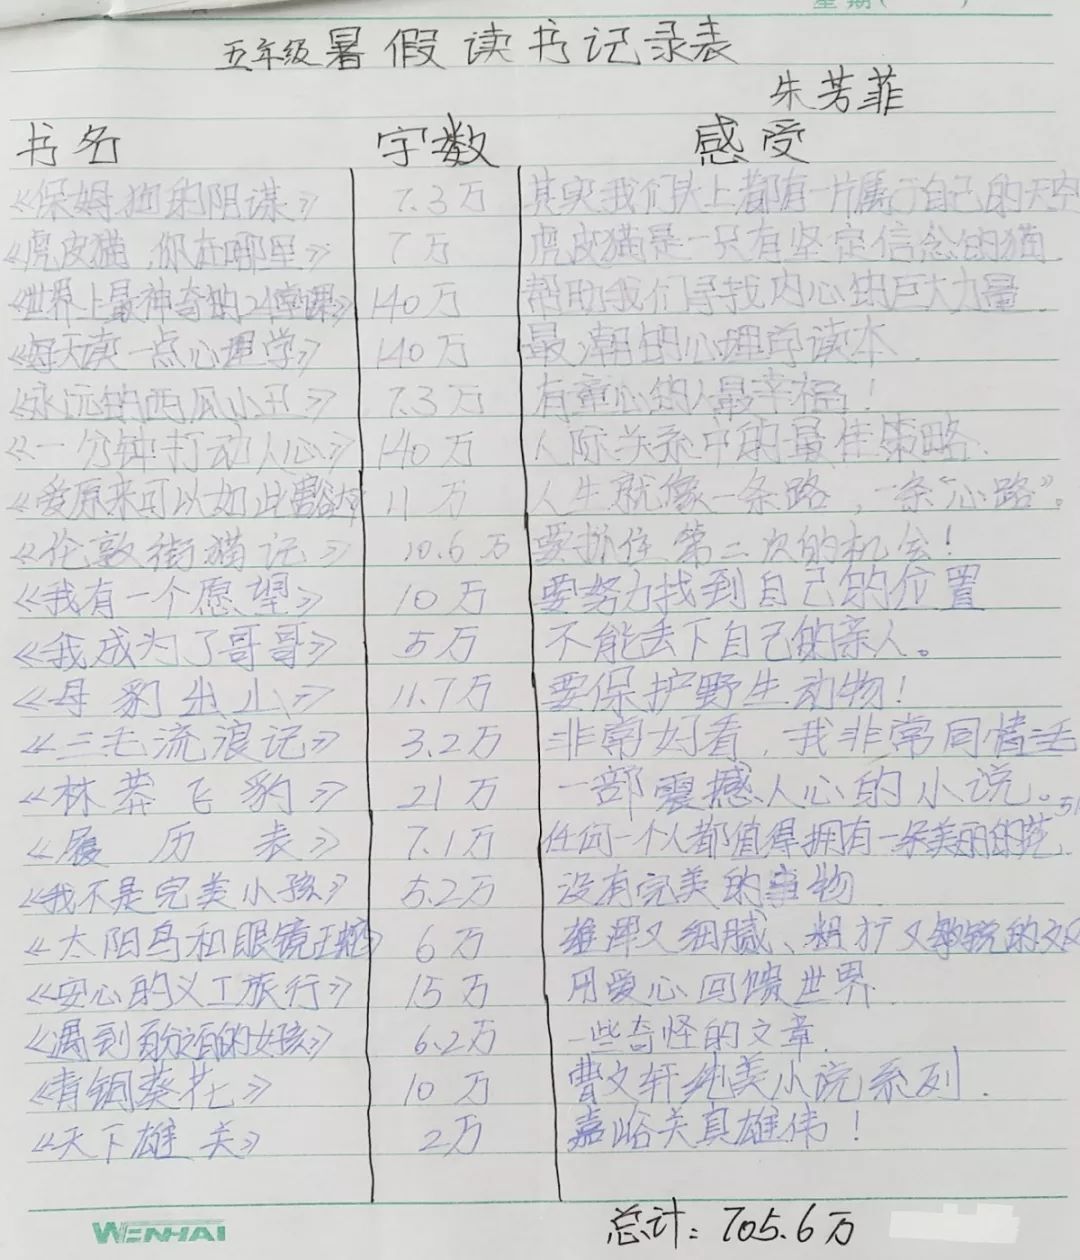 星期( )
五年级暑假读书记录表
朱芳菲
书名 字数 感受
《保姆狗的阴谋》 7.3万 其实我们头上都有一片属于自己的天空
《虎皮猫,你在哪里》 7万 虎皮猫是一只有坚定信念的猫.
《世界上最神奇的24堂课》 140万 帮助我们寻找内心的巨大力量.
《每天读一点心理学》 140万 最潮的心理学读本.
《永远的西瓜小丑》 7.3万 有童心的人最幸福!
《一分钟打动人心》 140万 人际关系中的最佳策略.
《爱原来可以如此 11万 人生就像一条路,一条“心路”。
《伦敦街猫记》 10.6万 要抓住第二次的机会!
《我有一个愿望》 10万 要努力找到自己的位置
《我成为了哥哥》 5万 不能丢下自己的亲人。
《母豹出山》 11.7万 要保护野生动物!
《三毛流浪记》 3.2万 非常好看,我非常同情主
《林莽飞豹》 21万 一部震撼人心的小说。
《履历表》 7.1万 任何一个人都值得拥有一条美丽的
《我不是完美小孩》 5.2万 没有完美的事物
《太阳鸟和眼镜王蛇》 6万 雄浑又细腻、粗犷又敏锐的文
《安心的义工旅行》 15万 用爱心回馈世界.
《遇到 的女孩》 6.2万 一些奇怪的文章.
《青铜葵花》 10万 曹文轩纯美小说系列.
《天下雄关》 2万 嘉峪关真雄伟!
WENHAI
总计:705.6万